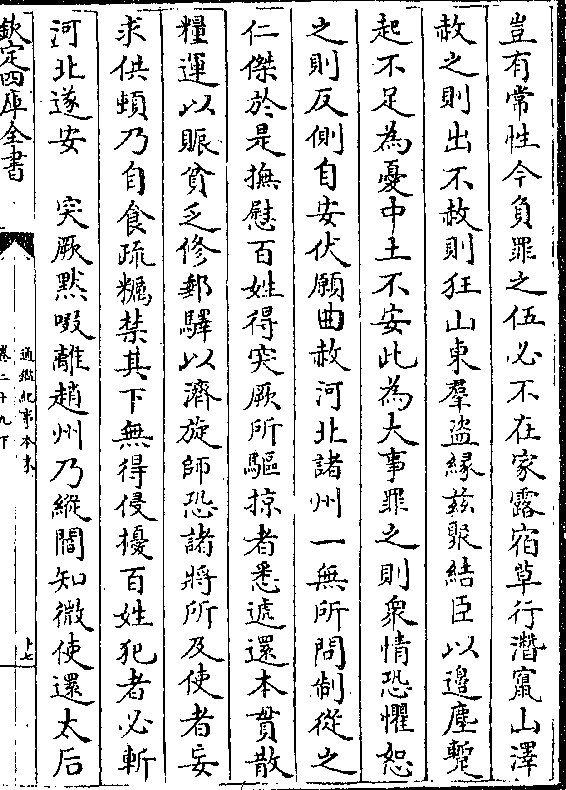 豈有常性今負罪之伍必不在家露宿草行潛竄山澤
赦之則出不赦則狂山東羣盜緣兹聚結臣以邊塵蹔
起不足為憂中土不安此為大事罪之則衆情恐懼恕
之則反側自安伏願曲赦河北諸州一無所問制從之
仁傑於是撫慰百姓得突厥所驅掠者悉遞還本貫散
糧運以賑貧乏修郵驛以濟旋師恐諸將所及使者妄
求供頓乃自食疏糲禁其下無得侵擾百姓犯者必斬
河北遂安　突厥黙啜離趙州乃縱閻知微使還太后
欽定四庫全書
通鑑紀事本末
卷二十九下
十七